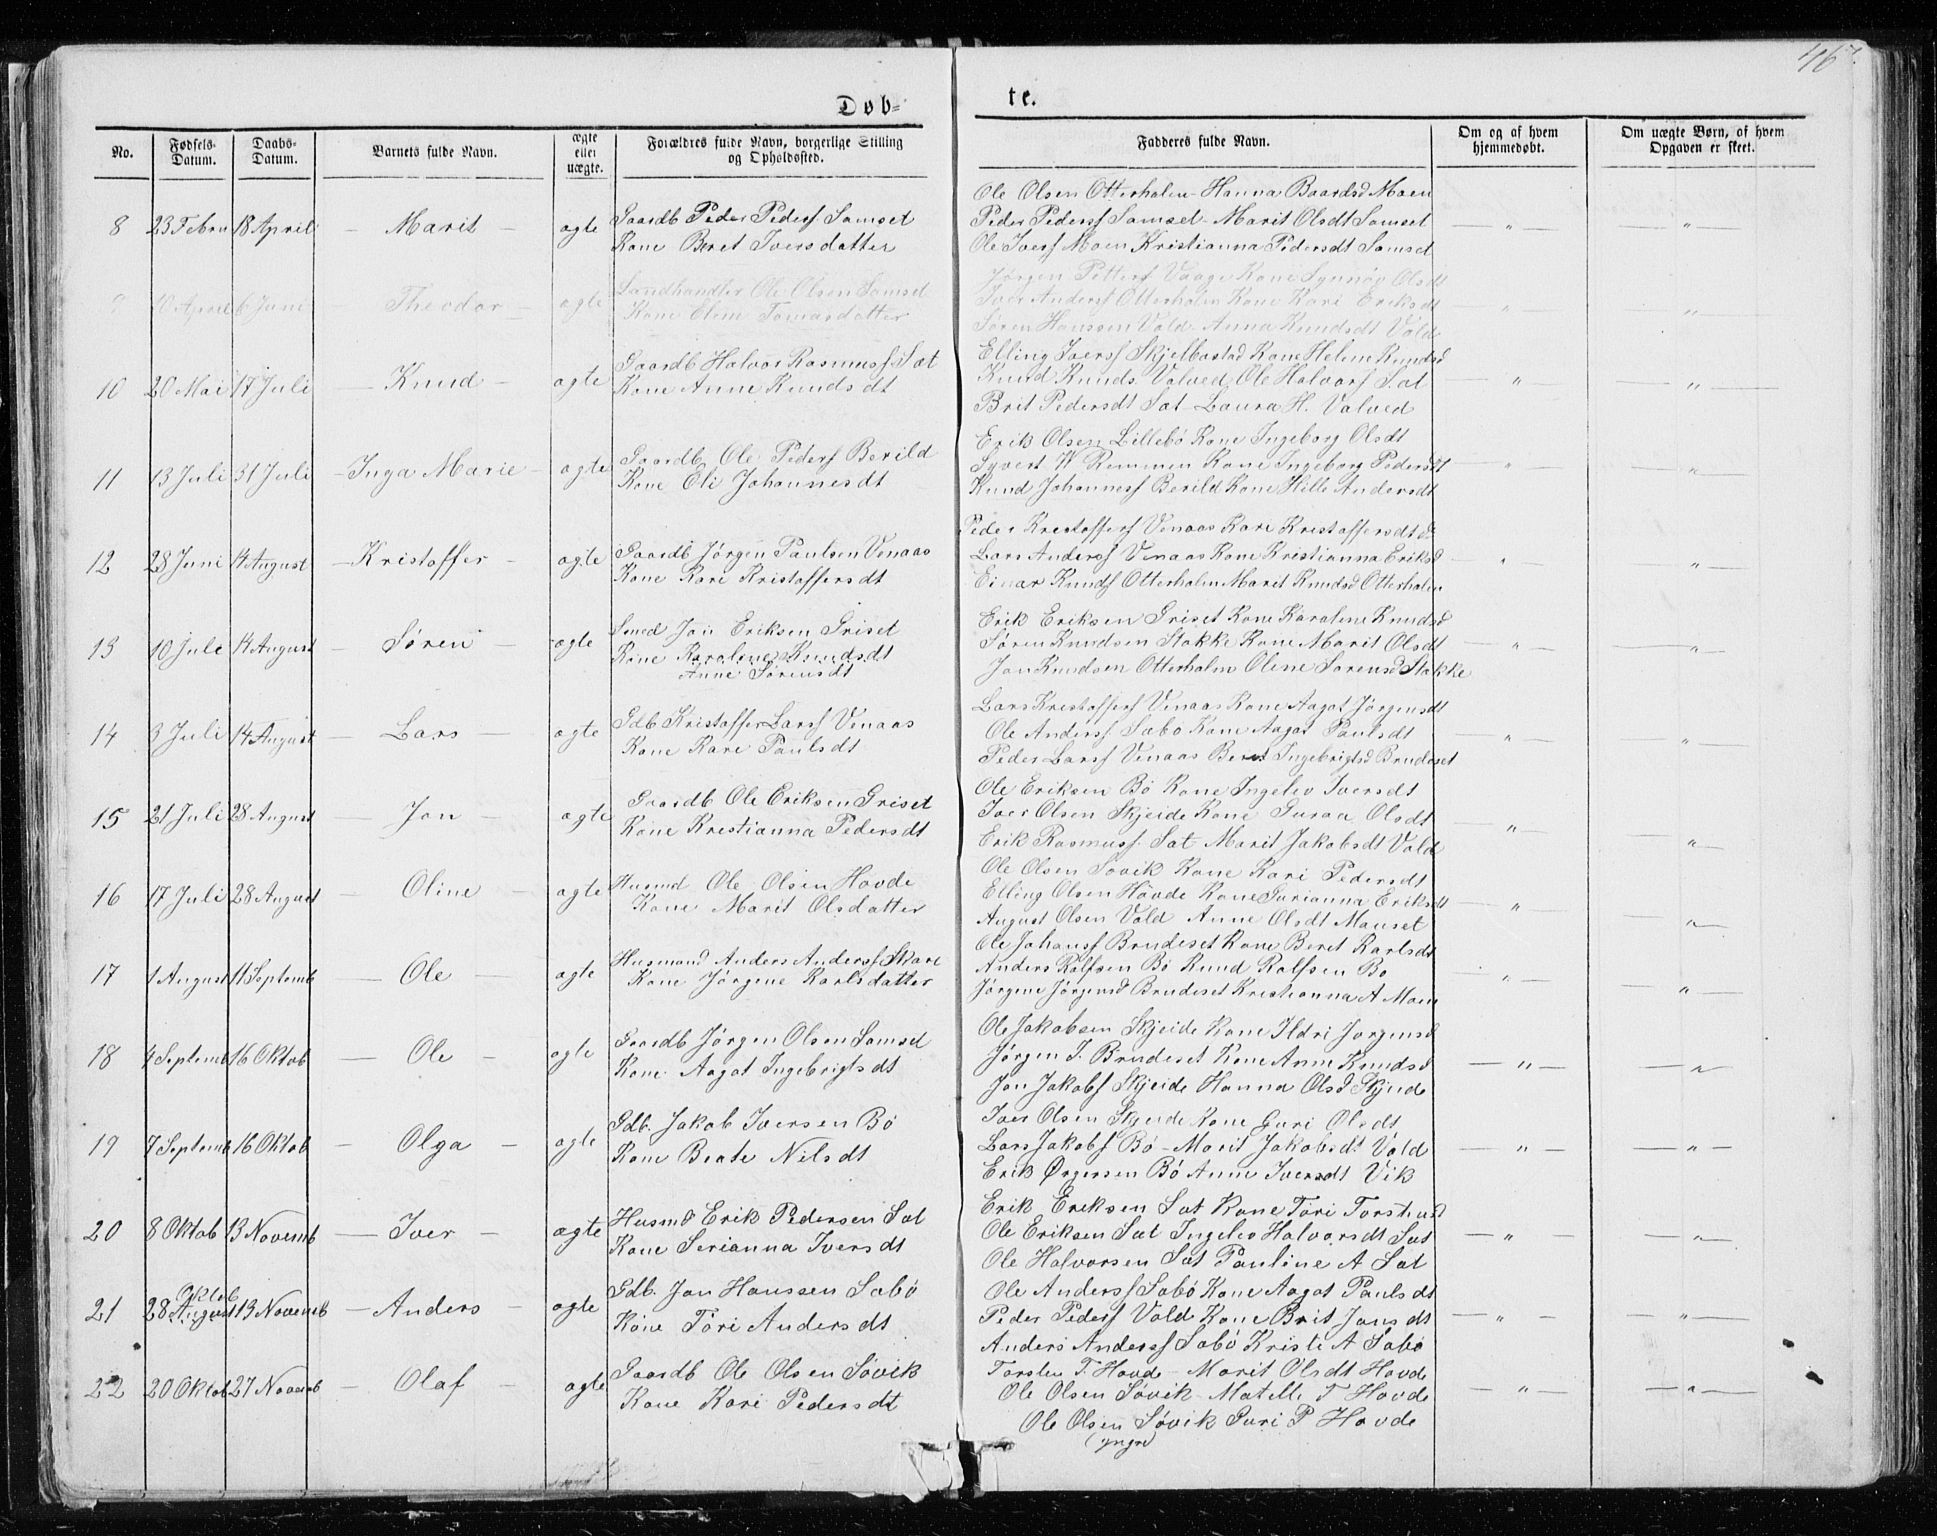 46.
Døb-
te.
No.
Fødsels-
Datum.
Daabs-
Datum.
Barnets fulde Navn.
ægte
eller
uægte.
Forældres fulde Navn, borgerlige Stilling
og Opholdssted.
Fadderes fulde Navn.
Om og af hvem
hjemmedøbt.
Om uægte Børn, af hvem
Opgaven er skeet.
8 23 Febru 18 April — Marit — ægte
Gaardb Peder Peders Samset
Kone Beret Iversdatter
Ole Olsen Otterholm - Hanna Baardsd Moen
Peder Peders Samset - Marit Olsdt Samset
Ole Ivers Moen Kristianna Pedersdt Samset
— " — — " —
9 10 April 6 Juni — Theodor — ægte
Landhandler Ole Olsen Samset
Kone Elen Tomasdatter
Jørgen Petters Vaage Kone Synnøv Olsdt
Iver Anders Otterholm Kone Kari Eriksdt
Søren Hanssen Vold - Anna Knudsdt Vold
" "
10 20 Mai 17 Juli — Knud — ægte
Gaardb Halvor Rasmuss Sæt
Kone Anne Knudsdt
Elling Ivers Skjelbostad Kone Helene Knudsd
Knud Knuds Valved Ole Halvors Sæt
Brit Pedersdt Sæt - Laura H. Valved
— " — — " —
11 13 Juli 31 Juli — Inga Marie — ægte
Gaardb Ole Peders Berild
Kone Eli Johannesdt
Erik Olsen Lillebø Kone Ingeborg Olsdt
Syvert W Remmen Kone Ingeborg Pedersdt
Knud Johanness Berild Kone Hille Andersdt
— " — — " —
12 28 Juni 14 August — Kristoffer — ægte
Gaardb Jørgen Paulsen Venaas
Kone Kari Kristoffersdt
Peder Kristoffers Venaas Kari Kristoffersdt
Lars Anders Venaas Kone Kristianna Eriksd
Einar Knuds Otterholm Marit Knudsd Otterholm
— " — — " —
13 10 Juli 14 August — Søren — ægte
Smed Jon Eriksen Griset
Kone Karolene Knudsdt
Anne Sørensdt
Erik Eriksen Griset Kone Karolene Knudsd
Søren Knudsen Stokke Kone Marit Olsdt
Jon Knudsen Otterholm Oline Sørensd Stokke
— " — — " —
14 3 Juli 14 August — Lars — ægte
Gdb Kristoffer Lars Venaas
Kone Kari Paulsdt
Lars Kristoffers Venaas Kone Aagot Jørgensdt
Ole Anders Sæbø Kone Aagot Paulsdt
Peder Lars Venaas Beret Ingebrigtsd Brudeset
— " — — " —
15 21 Juli 28 August — Jon — ægte
Gaardb Ole Eriksen Griset
Kone Kristianna Pedersdt
Ole Eriksen Bø Kone Ingelev Iversdt
Iver Olsen Skjeide Kone Guraa Olsdt
Erik Rasmuss Sæt Marit Jakobsdt Vold
— " — — " —
16 17 Juli 28 August — Oline — ægte
Husmd Ole Olsen Hovde
Kone Marit Olsdatter
Ole Olsen Søvik Kone Kari Pedersdt
Elling Olsen Hovde Kone Surianna Eriksdt
August Olsen Vold Anne Olsdt Mauset
— " — — " —
17 1 August 11 Septemb — Ole — ægte
Husmand Anders Anderss Skare
Kone Jørgene Karlsdatter
Ole Johans Brudeset Kone Beret Karlsdt
Anders Rolfsen Bø Knud Rolfsen Bø
Jørgene Jørgensd Brudeset Kristianna A Moen
— " — — " —
18 4 Septemb 16 Oktob — Ole — ægte
Gaardb Jørgen Olsen Samset
Kone Aagot Ingebrigtsdt
Ole Jakobsen Skjeide Kone Ildri Jørgensd
Jørgen J. Brudeset Kone Anne Knudsd
Jon Jakobs Skjeide Hanna Olsd Skjeide
— " — — " —
19 7 Septemb 16 Oktob — Olga — ægte
Gdb. Jakob Iversen Bø
Kone Beate Nilsdt
Iver Olsen Skjeide Kone Guri Olsdt
Lars Jakobs Bø - Marit Jakobsdt Vold
Erik Ørgersen Bø Anne Iversdt Vik
— " — — " —
20 8 Oktob 13 Novemb — Iver — ægte
Husmd Erik Pedersen Sæt
Kone Serianna Iversdt
Erik Eriksen Sæt Kone Tøri Torstensd
Ole Eriksen Sæt Ingelev Halvorsdt Sæt
Ole Halvorsen Sæt Pauline A Sæt
— " — — " —
Oktob
21 28 August 13 Novemb — Anders — ægte
Gdb. Jon Hanssen Sæbø
Kone Tøri Andersdt
Ole Anders Sæbø Kone Aagot Paulsdt
Peder Peders Vold Kone Brit Jonsdt
Anders Anderss Sæbø Kristi A Sæbø
— " — — " —
22 20 Oktob 27 Novemb — Olaf — ægte
Gaardb Ole Olsen Søvik
Kone Kari Pedersdt
Torsten T. Hovde - Marit Olsdt Hovde
Ole Olsen Søvik - Matelle T Hovde
Ole Olsen Søvik Guri P Hovde
(yngre)
— " — — " —